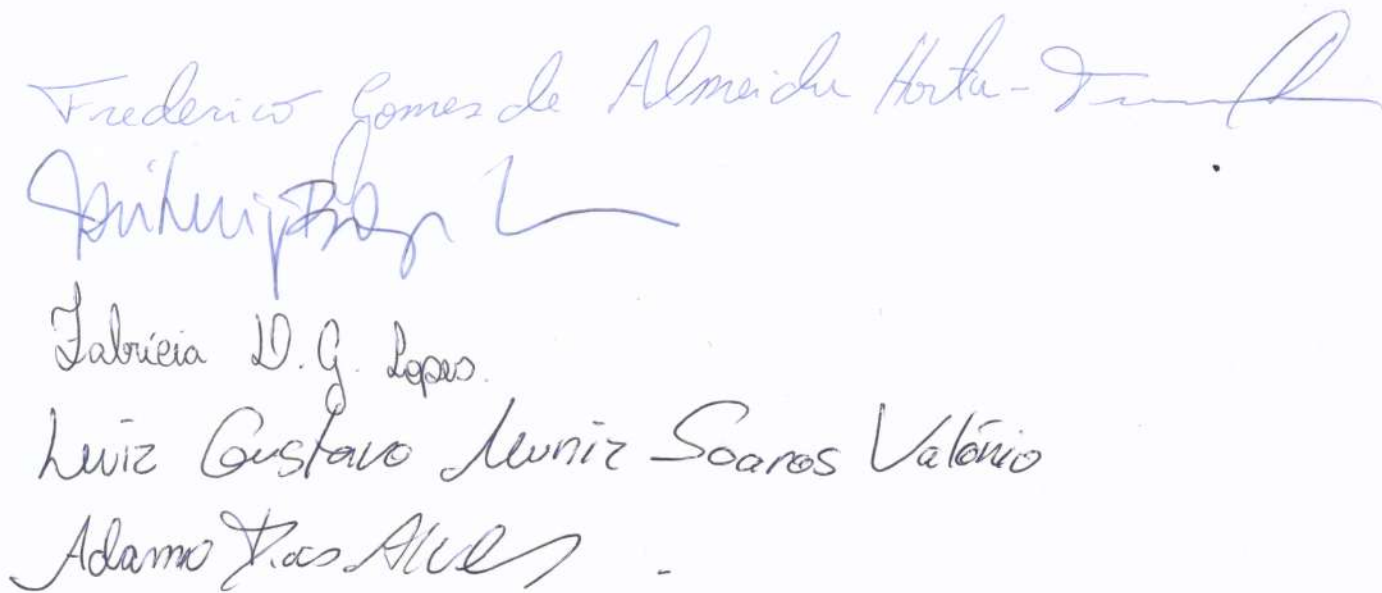 Frederico Gomes de Almeida Horta -
Fabrícia D. G. Lopes.
Luiz Gustavo Muniz Soares Valério
Adamo Dias Alves